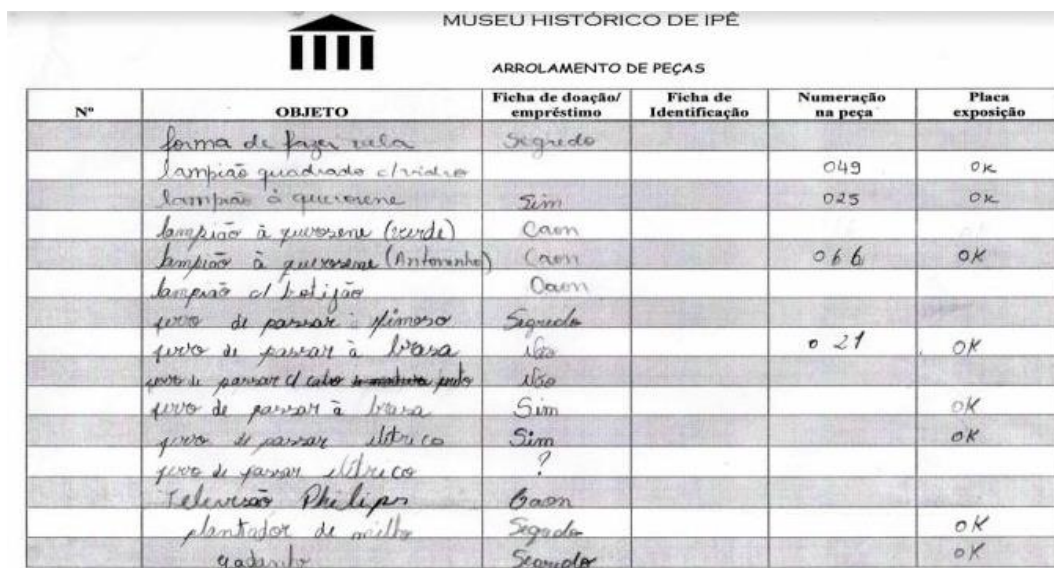 MUSEU HISTÓRICO DE IPÊ
ARROLAMENTO DE PEÇAS
Nº OBJETO Ficha de doação/ empréstimo Ficha de Identificação Numeração na peça Placa exposição
forma de fazer vela Segredo
lampião quadrado c/vidro 049 OK
lampião à querosene Sim 025 OK
lampião à querosene (verde) Caon
lampião à querosene (Antoninho) Caon 066 OK
lampião c/ botijão Caon
ferro de passar mimoso Segredo
ferro de passar à brasa Não 021 OK
ferro de passar c/ cabo preto Não
ferro de passar à brasa Sim OK
ferro de passar elétrico Sim OK
ferro de passar elétrico ?
Televisão Philips Caon
plantador de milho Segredo OK
gadanho Segredo OK